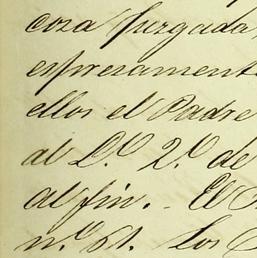 coza juzgada,
espresamente
ellos el Padre
al D.º 2.º de
al fin. - El
n.º 61. Los